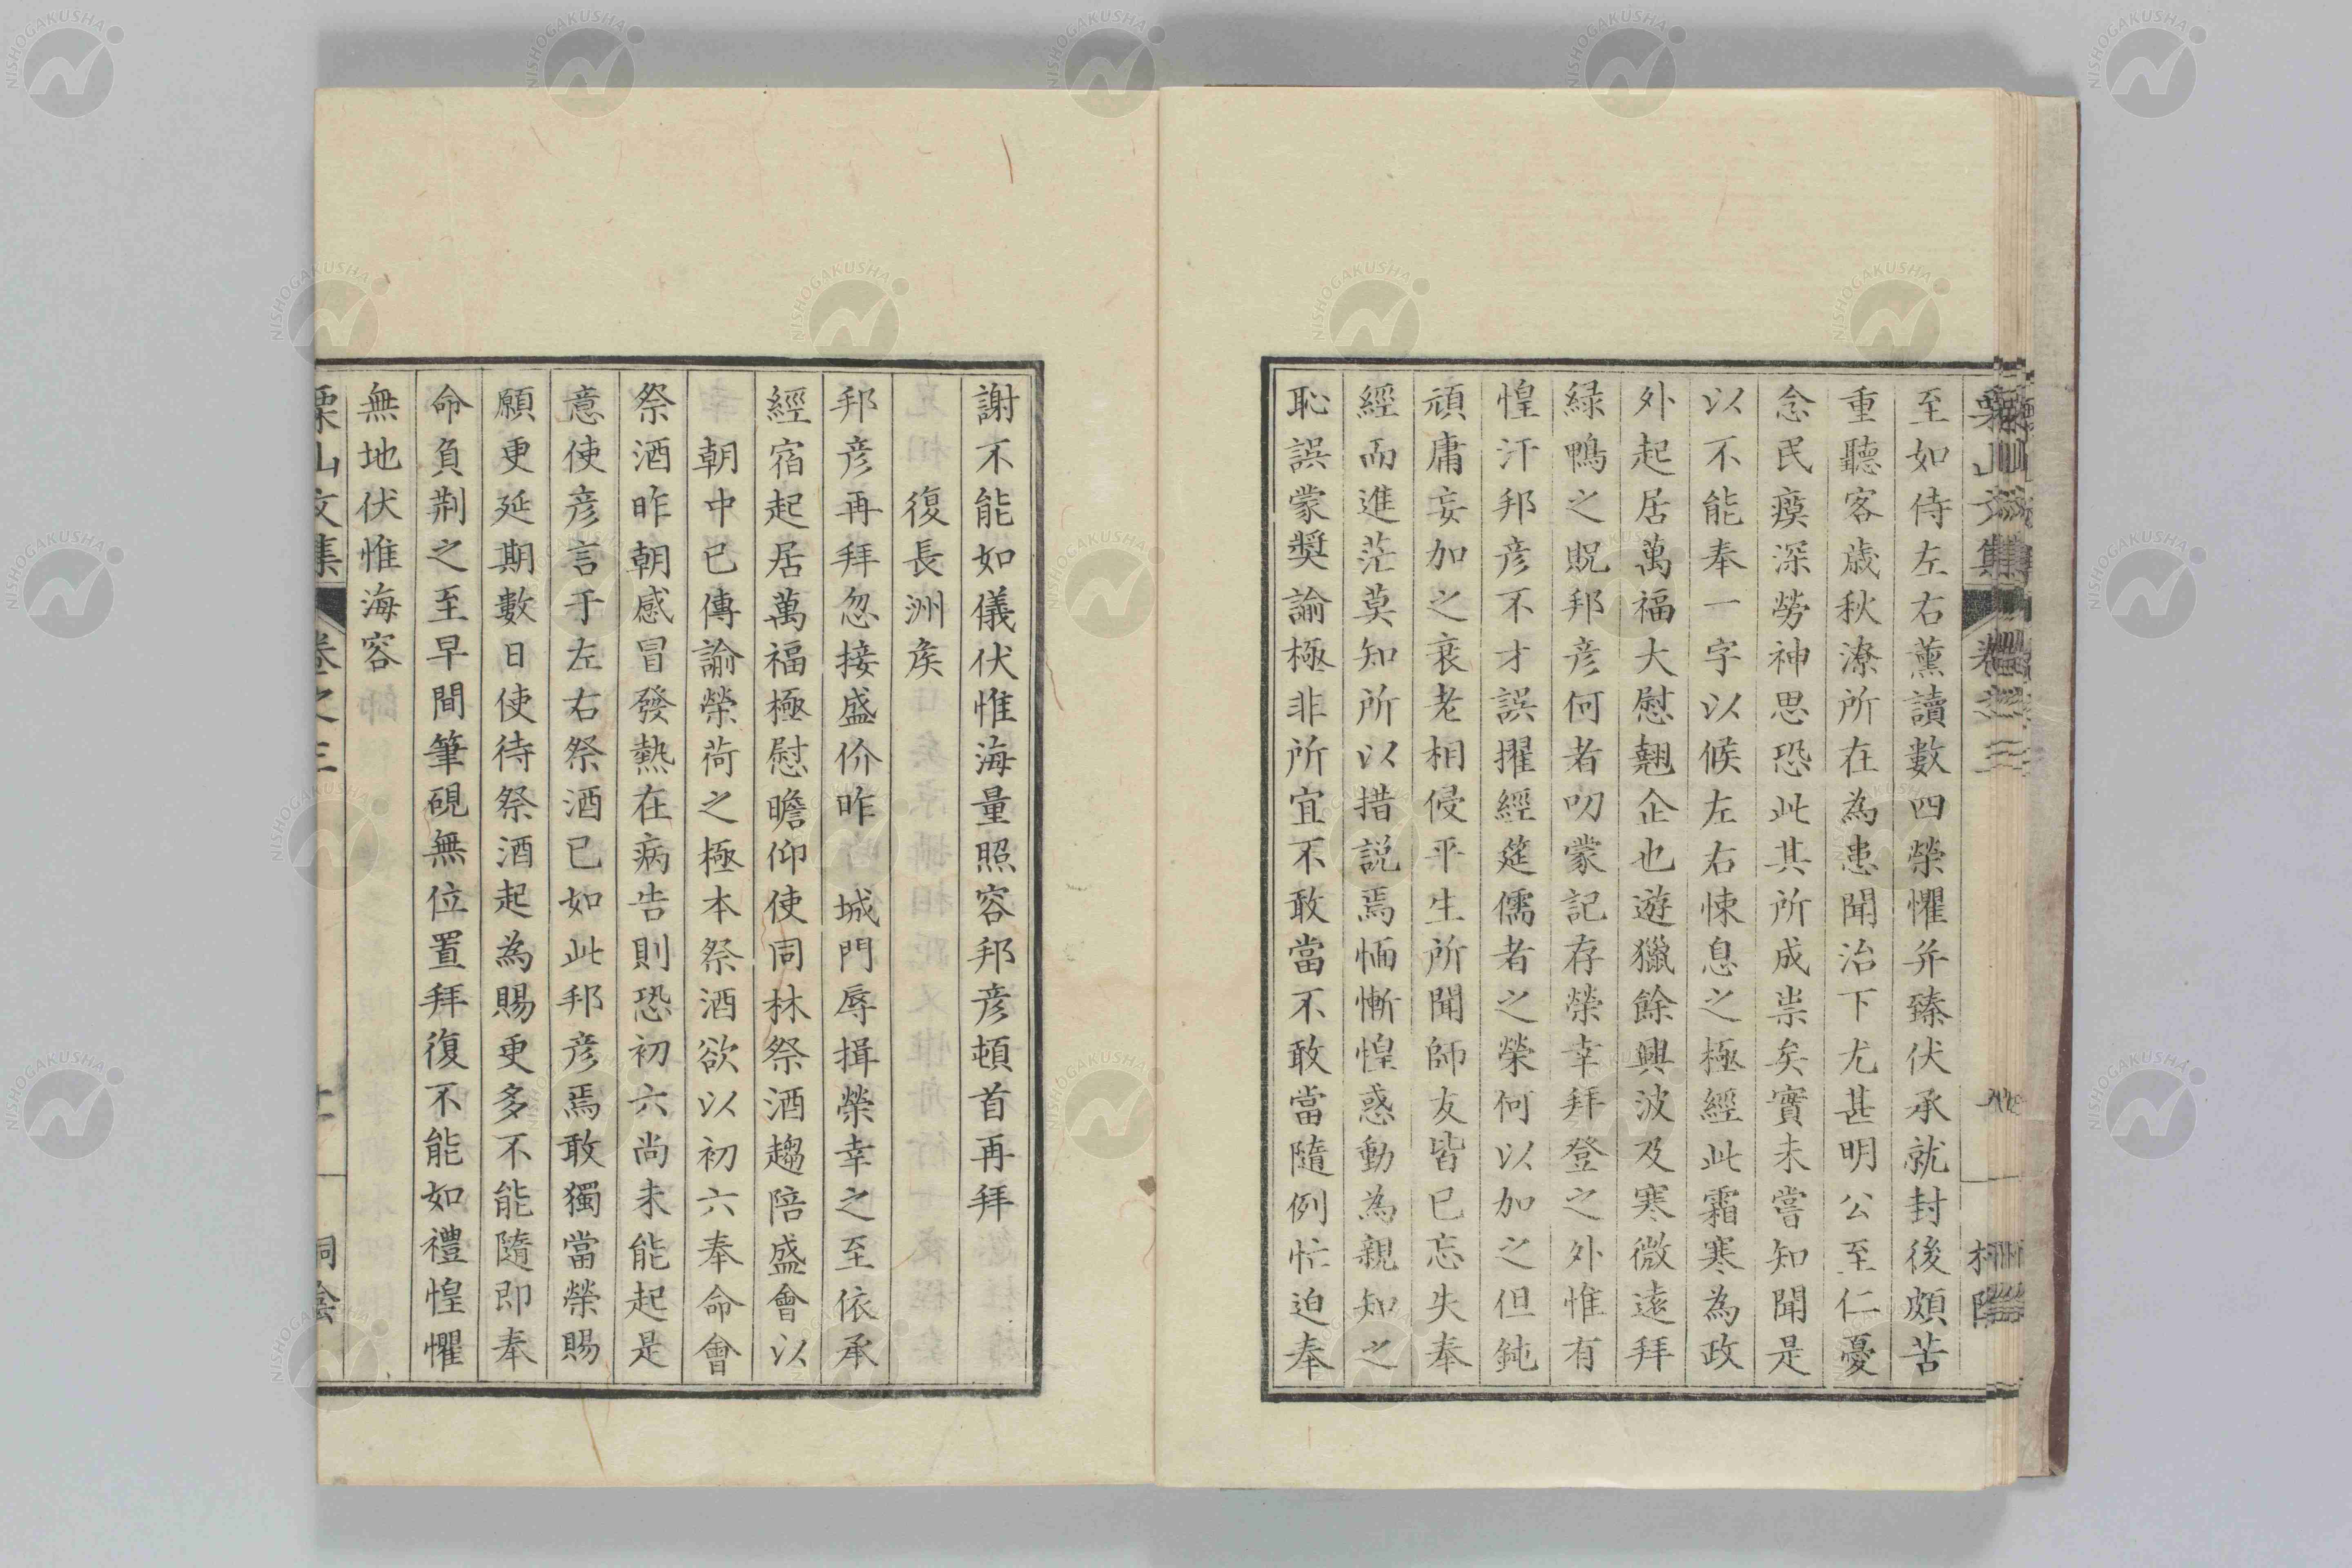 至如侍左右薫讀數四榮懼并臻伏承就封後頗苦
重聽客歳秋潦所在為患聞治下尤甚明公至仁憂
念民瘼深勞神思恐此其所成祟矣實未嘗知聞是
以不能奉一字以候左右悚息之極經此霜寒為政
外起居萬福大慰翹企也遊獵餘興波及寒微遠拜
緑鴨之貺邦彦何者叨蒙記存榮幸拜登之外惟有
惶汗邦彦不才誤擢經筵儒者之榮何以加之但鈍
頑庸妄加之衰老相侵平生所聞師友皆已忘失奉
經而進茫莫知所以措説焉愐慚惶惑動為親知之
恥誤蒙奬諭極非所宜不敢當不敢當隨例忙迫奉
謝不能如儀伏惟海量照容邦彦頓首再拜
復長洲矦
邦彦再拜忽接盛价昨城門辱揖榮幸之至依承
經宿起居萬福極慰瞻仰使同林祭酒趨陪盛會以
朝中已傳諭榮荷之極本祭酒欲以初六奉命會
祭酒昨朝感冒發熱在病告則恐初六尚未能起是
意使彦言于左右祭酒已如此邦彦焉敢獨當榮賜
願更延期數日使待祭酒起為賜更多不能隨即奉
命負荆之至早間筆硯無位置拜復不能如禮惶懼
無地伏惟海容
栗山文集 卷之三
NISHOGAKUSHA